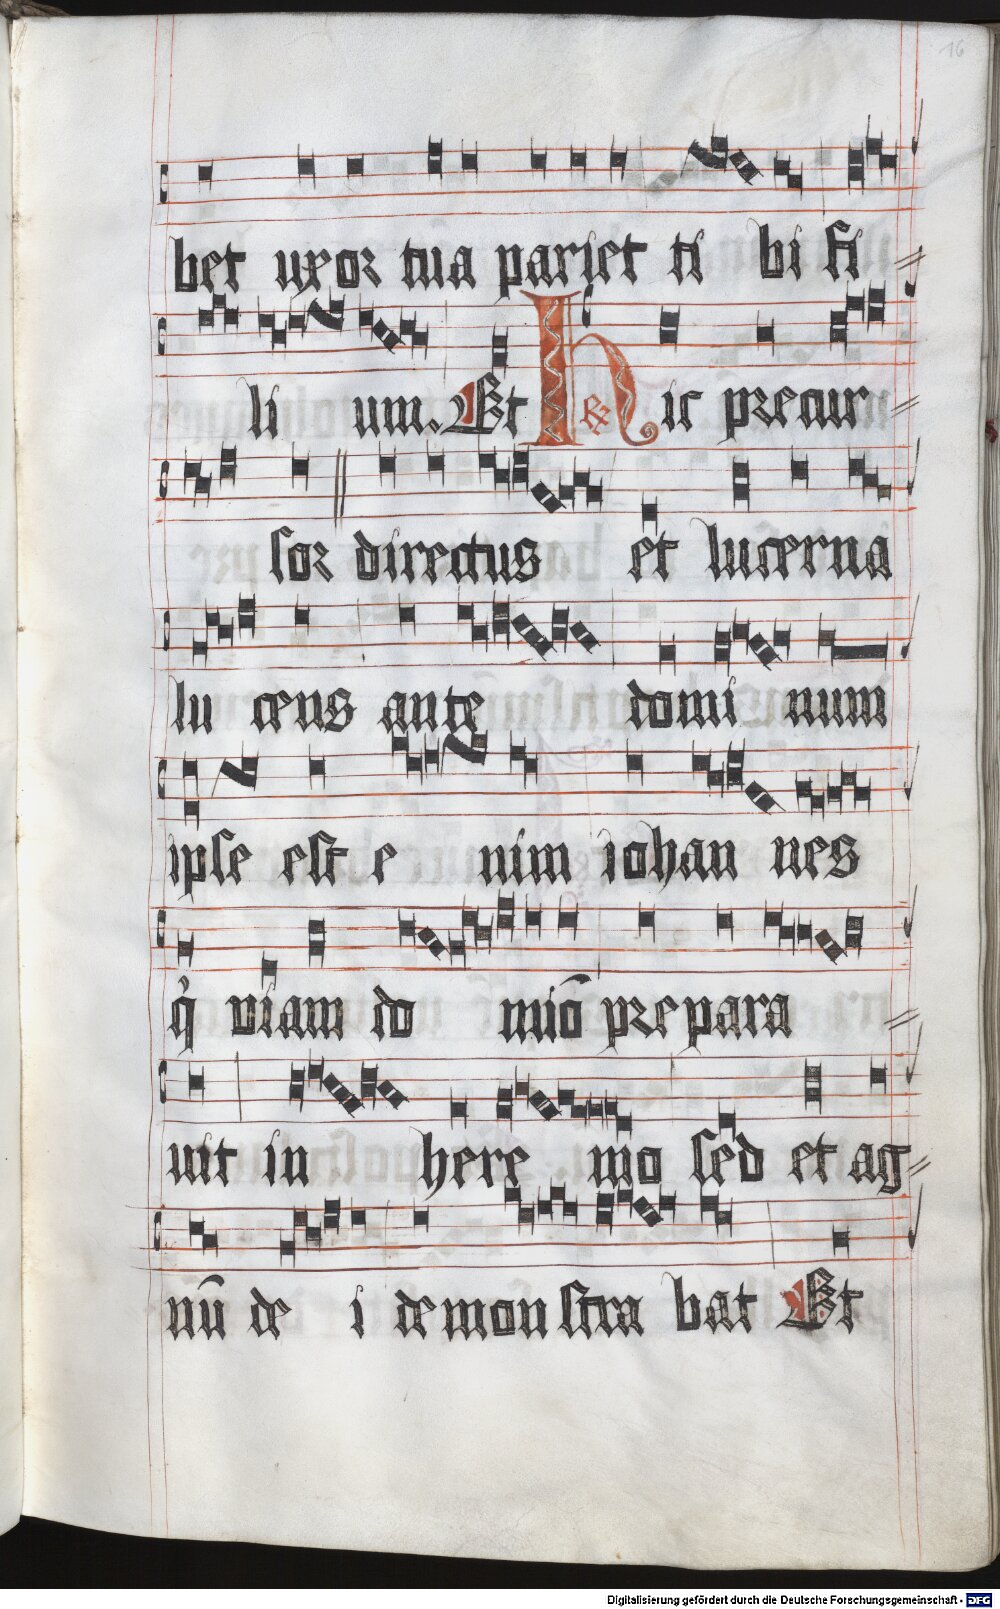 16
bet uxor tua pariet ti bi fi
li um. Et R Hic precur
sor directus et lucerna
lu cens ante domi num
ipse est e nim iohan nes
q̇ viam do mīo prepara
uit in here mo sed et ag
nū de i demonstra bat Et
Digitalisierung gefördert durch die Deutsche Forschungsgemeinschaft - DFG